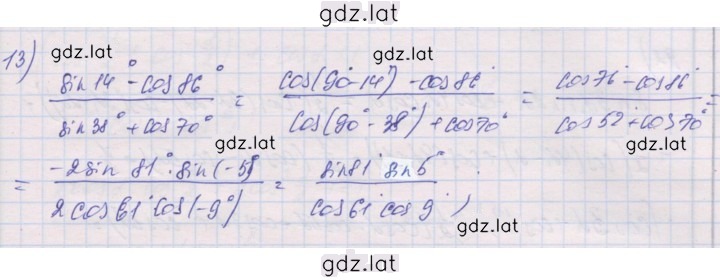 gdz.lat
13)
gdz.lat gdz.lat
(sin 14° - cos 86°) / (sin 38° + cos 70°) = (cos(90° - 14°) - cos 86°) / (cos(90° - 38°) + cos 70°) = (cos 76° - cos 86°) / (cos 52° + cos 70°) =
gdz.lat gdz.lat
= (-2 sin 81° · sin(-5°)) / (2 cos 61° cos(-9°)) = (sin 81° sin 5°) / (cos 61° cos 9°) ;
gdz.lat
gdz.lat